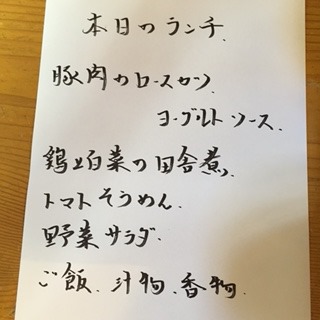 本日のランチ.
豚肉のロースカツ
ヨーグルトソース.
鶏と白菜の田舎煮.
トマトそうめん.
野菜サラダ.
ご飯、汁物、香物.